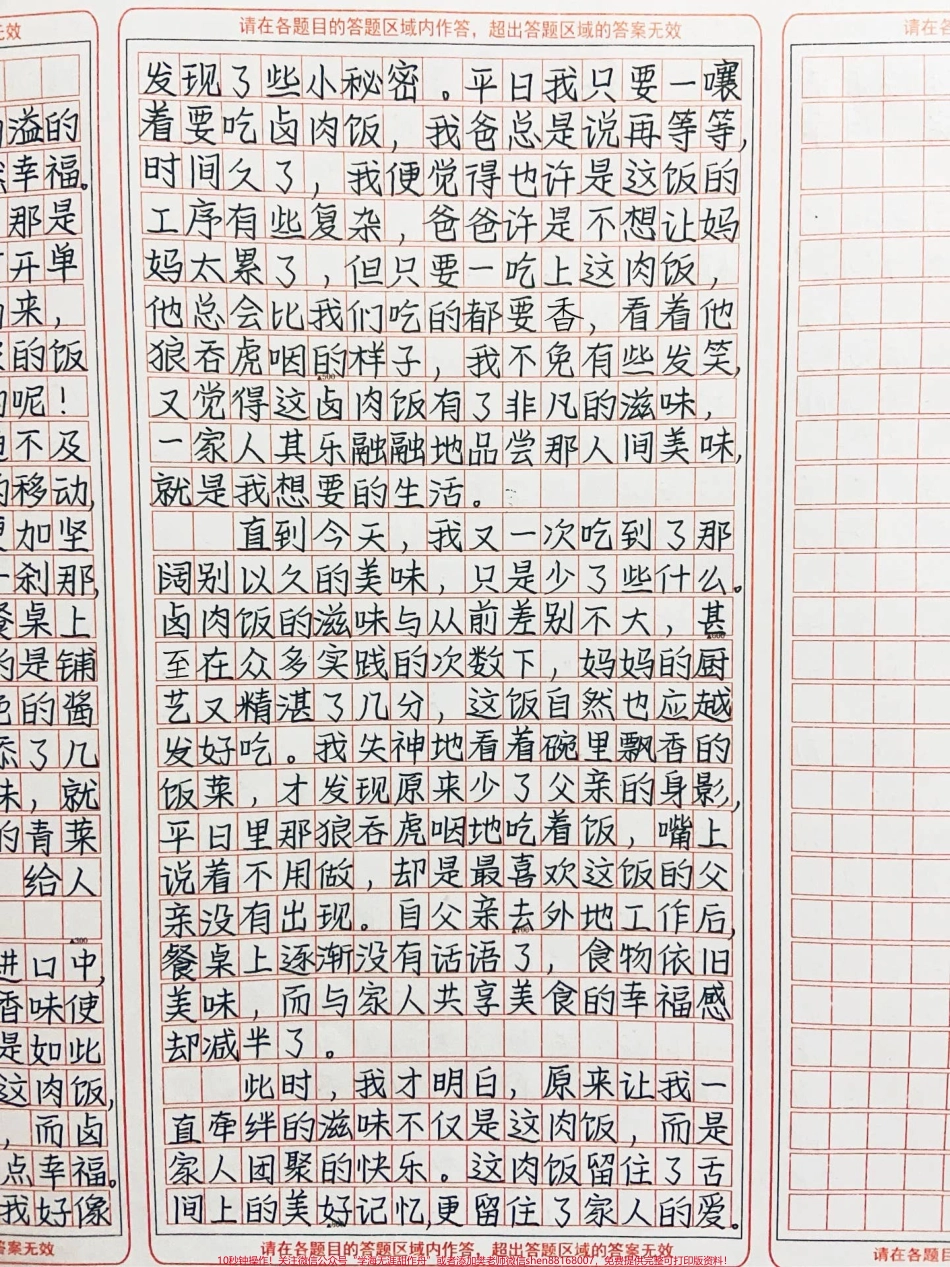 无效
溢的
幸福。
那是
开单
来，
的饭
呢！
不及
移动，
加坚
刹那，
桌上
是铺
的酱
了几
，就
的青菜
给人
▲300
口中，
香味使
是如此
这肉饭，
，而卤
点幸福。
我好像
答案无效
请在各题目的答题区域内作答，超出答题区域的答案无效
发现了些小秘密。平日我只要一嚷
着要吃卤肉饭，我爸总是说再等等，
时间久了，我便觉得也许是这饭的
工序有些复杂，爸爸许是不想让妈
妈太累了，但只要一吃上这肉饭，
他总会比我们吃的都要香，看着他
狼吞虎咽的样子，我不免有些发笑，
▲500
又觉得这卤肉饭有了非凡的滋味，
一家人其乐融融地品尝那人间美味，
就是我想要的生活。
直到今天，我又一次吃到了那
阔别以久的美味，只是少了些什么。
卤肉饭的滋味与从前差别不大，甚
▲600
至在众多实践的次数下，妈妈的厨
艺又精湛了几分，这饭自然也应越
发好吃。我失神地看着碗里飘香的
饭菜，才发现原来少了父亲的身影，
平日里那狼吞虎咽地吃着饭，嘴上
说着不用做，却是最喜欢这饭的父
亲没有出现。自父亲去外地工作后，
▲700
餐桌上逐渐没有话语了，食物依旧
美味，而与家人共享美食的幸福感
却减半了。
此时，我才明白，原来让我一
直牵绊的滋味不仅是这肉饭，而是
家人团聚的快乐。这肉饭留住了舌
间上的美好记忆，更留住了家人的爱。
请在各题目的答题区域内作答，超出答题区域的答案无效
10秒钟操作！关注微信公众号“学海无涯甜作舟”或者添加樊老师微信shen88168007，免费提供完整可打印版资料！
请在各
请在各题